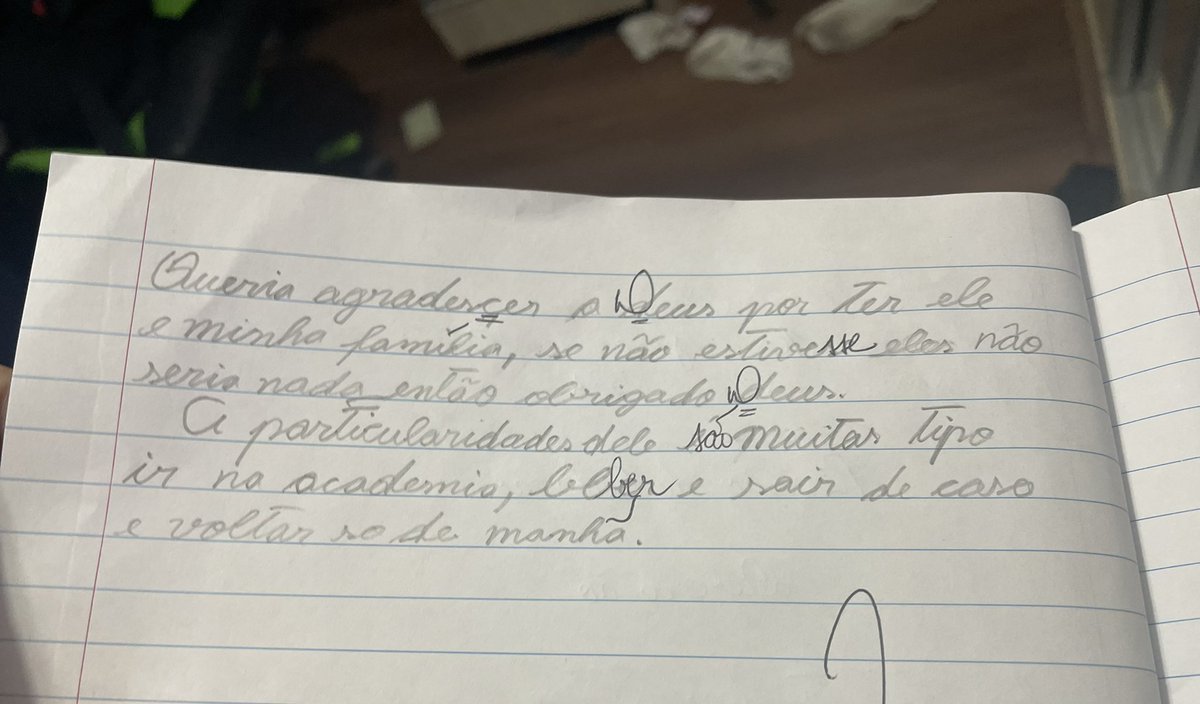 Queria agradesçer a Deus por ter ele
e minha família, se não estivesse eles não
seria nada então obrigado Deus.
A particularidades dele são muitas tipo
ir na academia, beber e sair de casa
e voltar so de manhã.